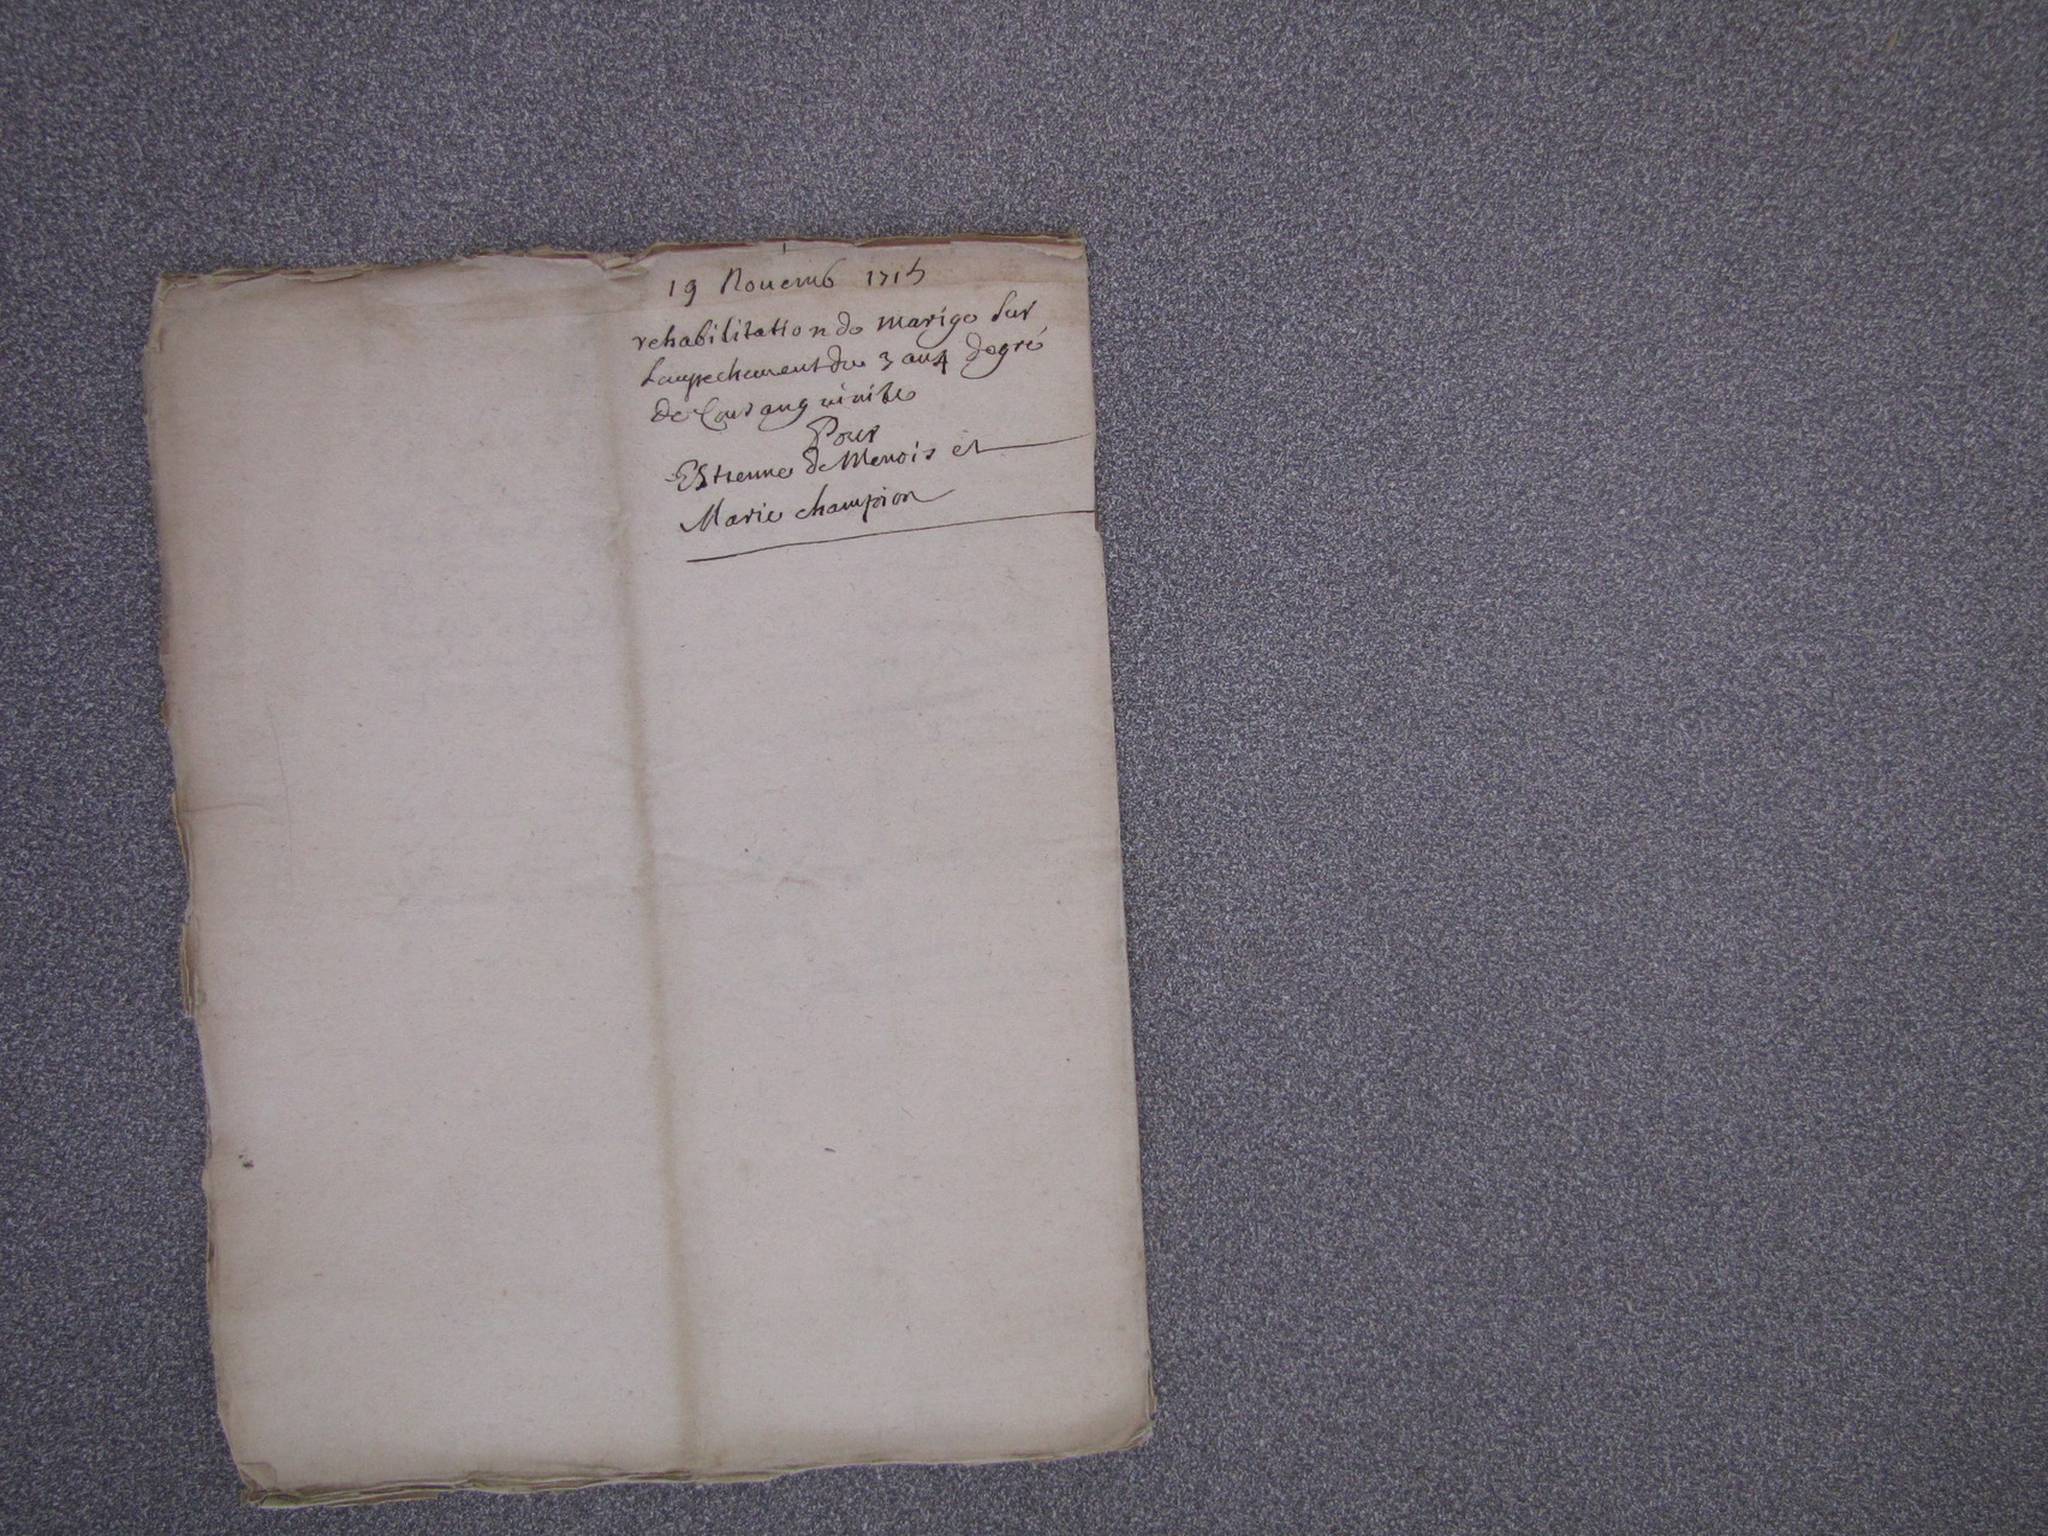 19 Nouemb 1715
rehabilitation de marige sur
lempechement du 3 au 4 degré
de Consanguinite
Pour
Estienne de Menois et
Marie champion